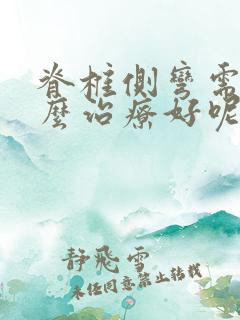 脊柱侧弯需
麼治療好呢
静飛雪
未经同意禁止转载